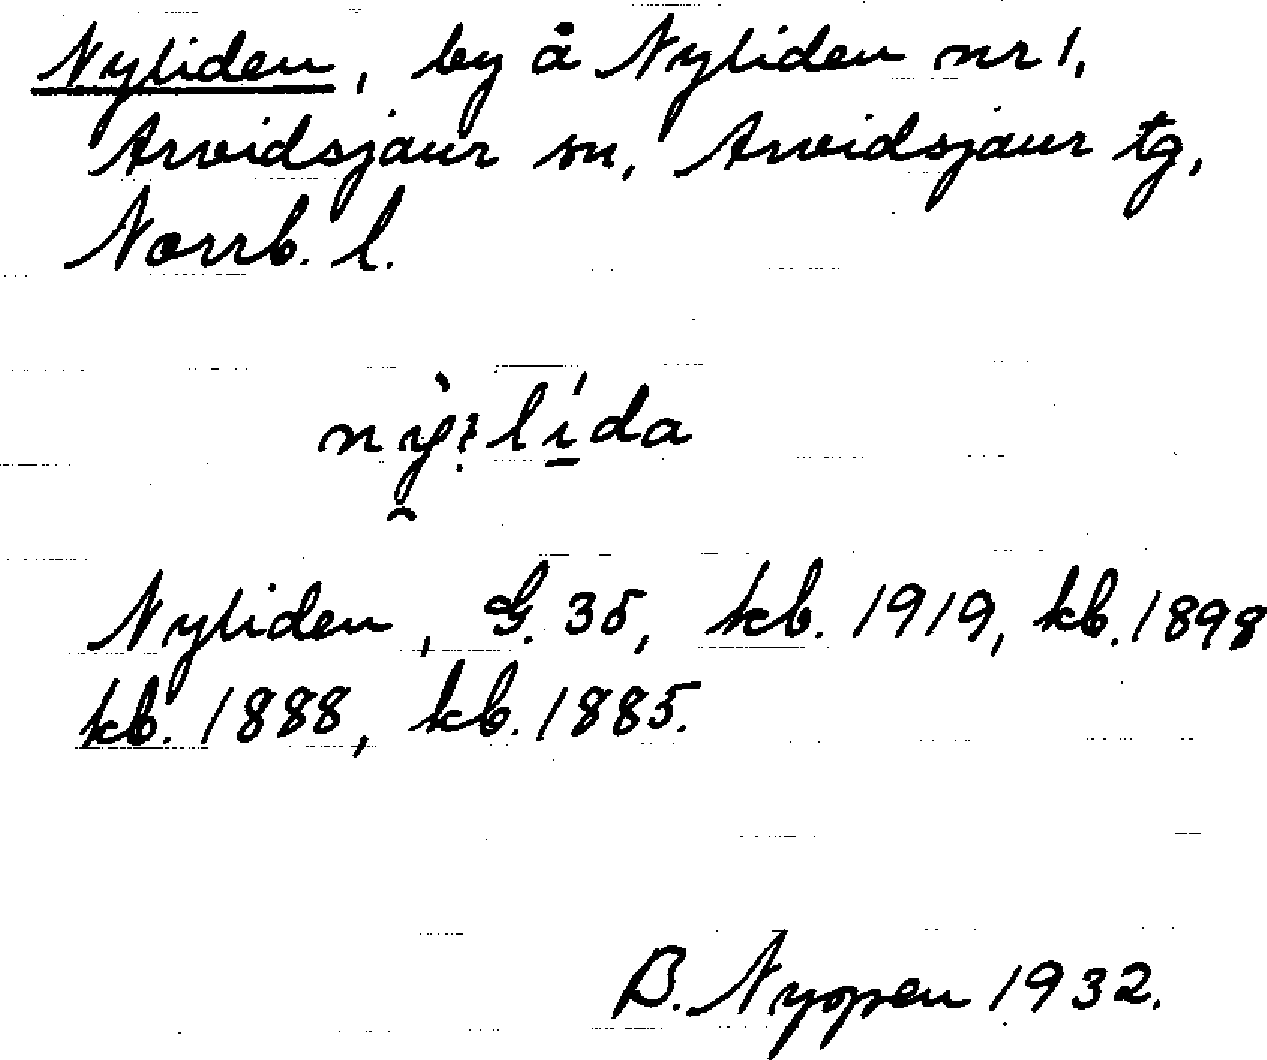 Nyliden, by å Nyliden nr 1,
Arvidsjaur sn, Arvidsjaur tg,
Norrb. l.
nỳ̯꞉lí̱da
Nyliden, G. 35, kb. 1919, kb. 1898
kb. 1888, kb. 1885.
B. Nyopen 1932.